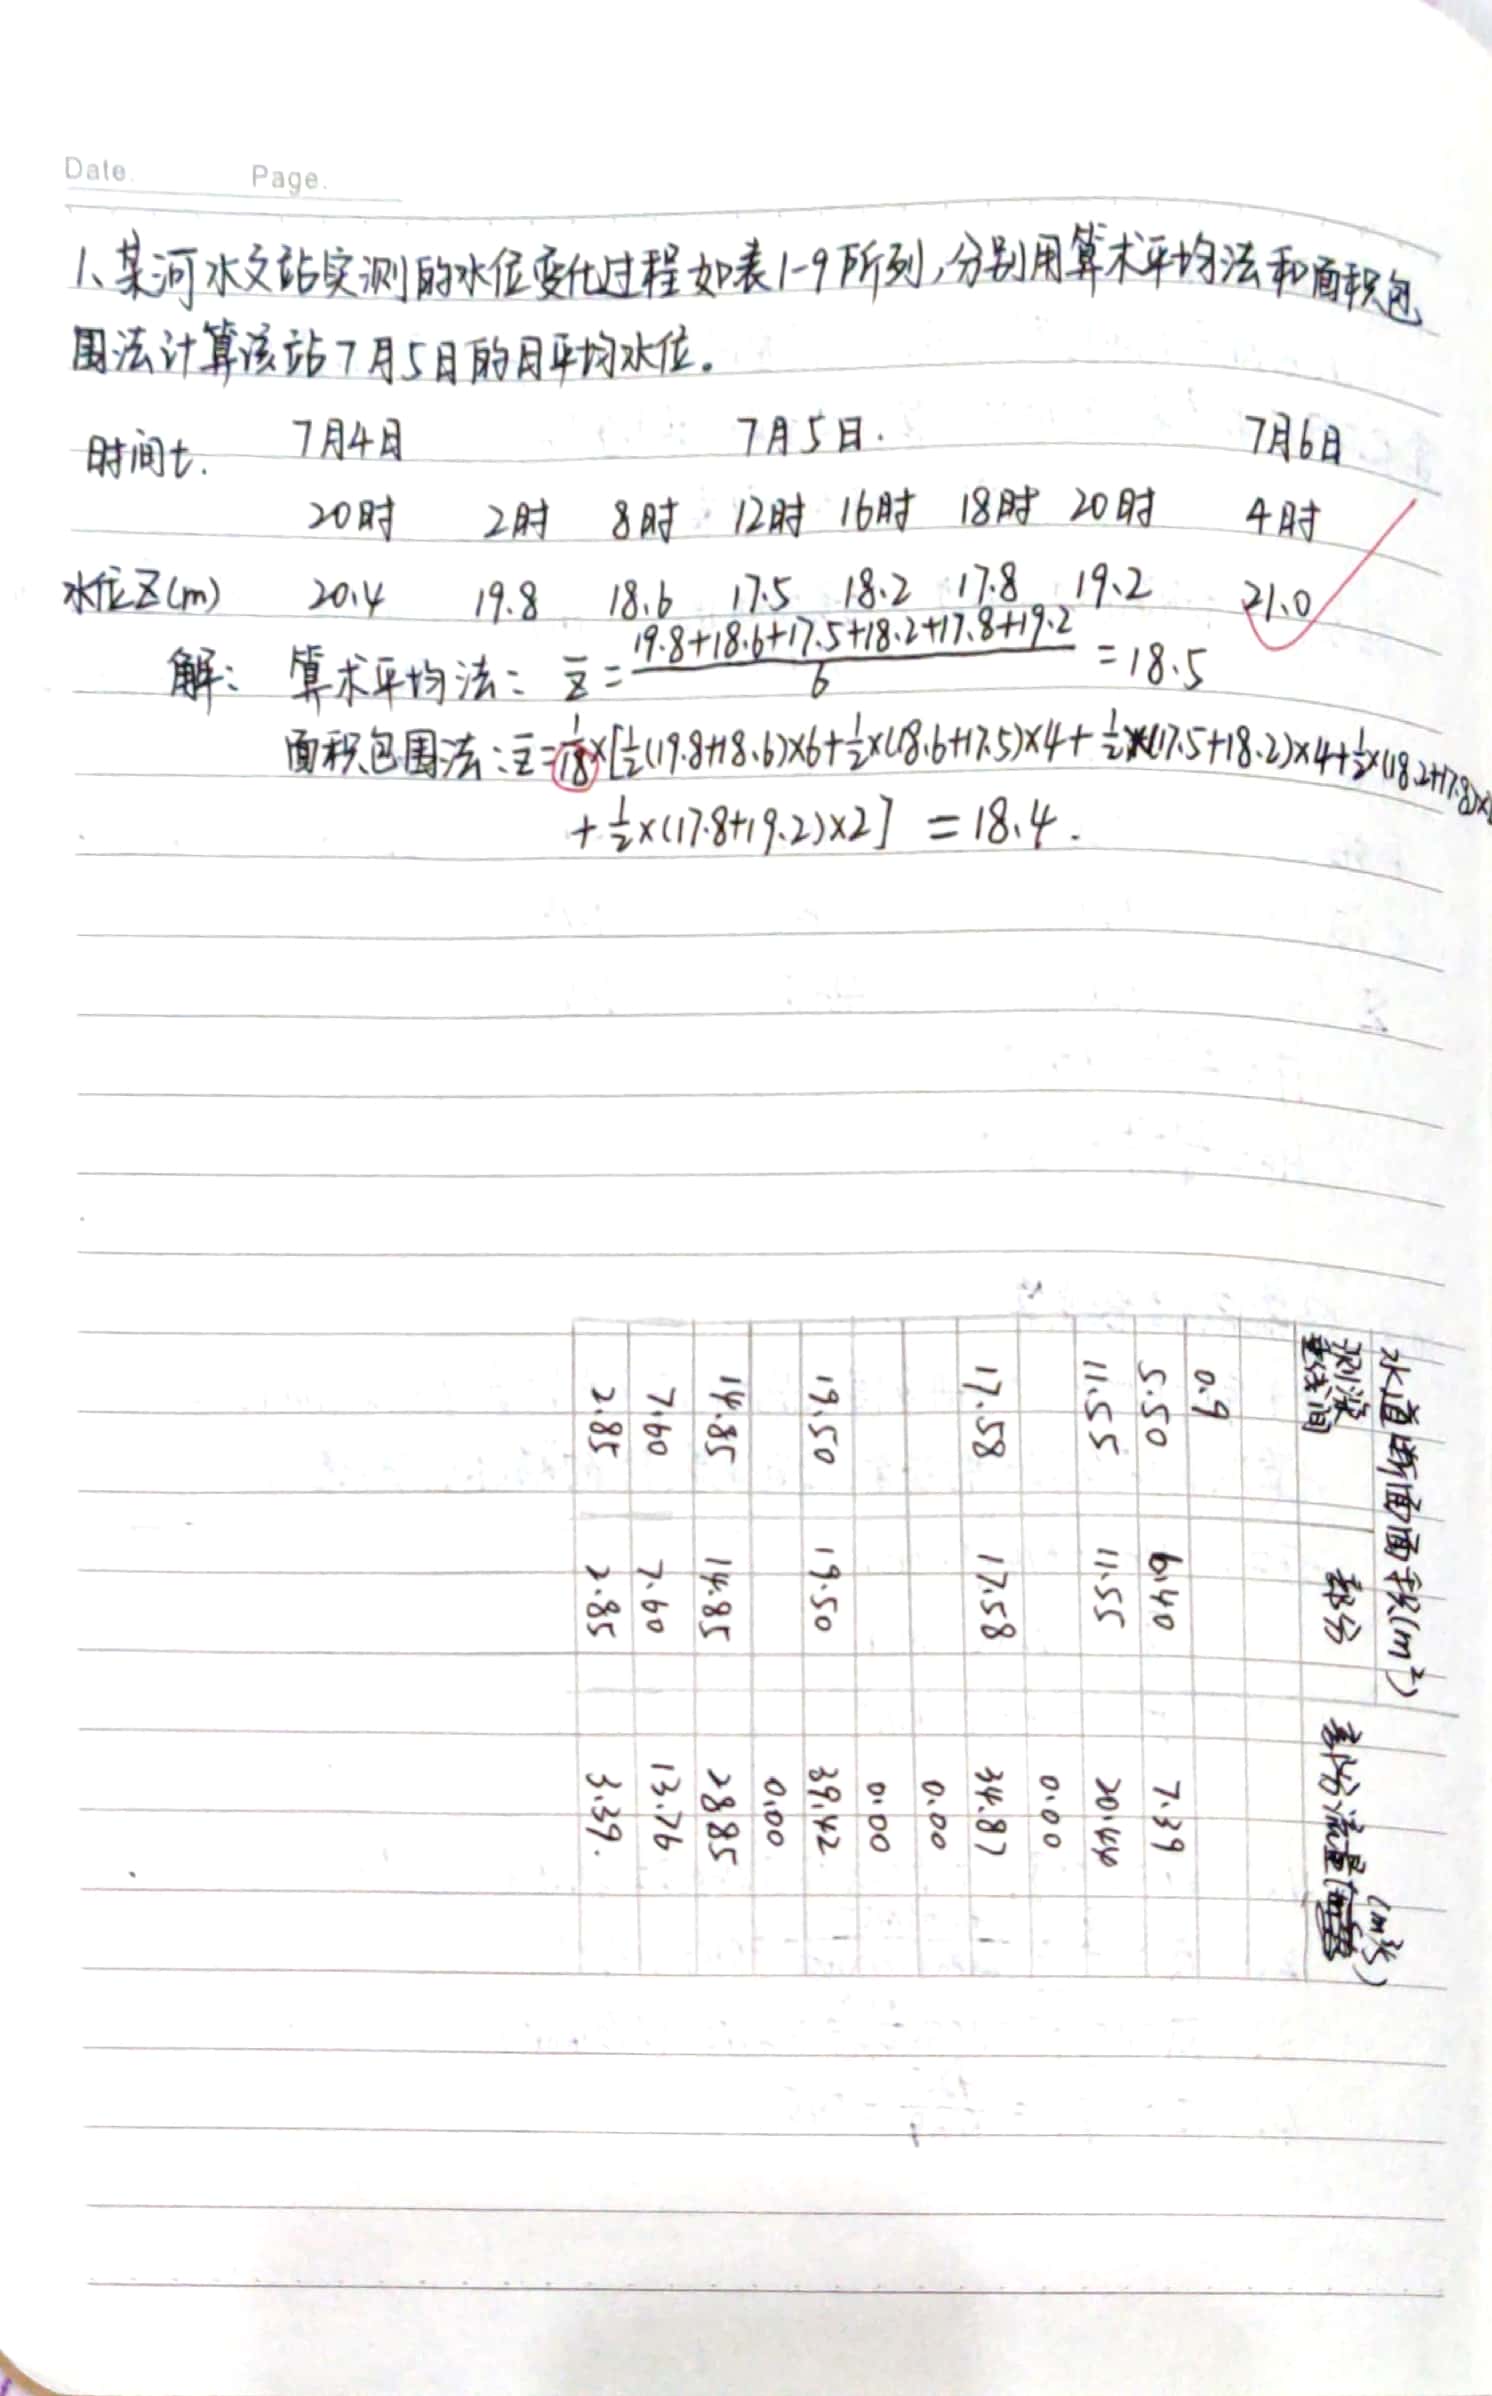 Date. Page.
1、某河水文站实测的水位变化过程如表1-9所列,分别用算术平均法和面积包
围法计算该站7月5日的日平均水位。
时间t. 7月4日 7月5日. 7月6日
20时 2时 8时 12时 16时 18时 20时 4时
水位Z(m) 20.4 19.8 18.6 17.5 18.2 17.8 19.2 21.0
解: 算术平均法: z̄ = (19.8+18.6+17.5+18.2+17.8+19.2)/6 = 18.5
面积包围法: z̄ = 1/18×[1/2(19.8+18.6)×6+1/2×(18.6+17.5)×4+1/2×(17.5+18.2)×4+1/2×(18.2+17.8)×2
+1/2×(17.8+19.2)×2] = 18.4.
水道断面面积(m²) 部分流量(m³/s)
测深垂线间 部分
0.9
5.50 6.40 7.39
11.55 11.55 20.44
0.00
17.58 17.58 34.87
0.00
0.00
19.50 19.50 39.42
0.00
14.85 14.85 28.85
7.60 7.60 13.76
2.85 2.85 3.39.